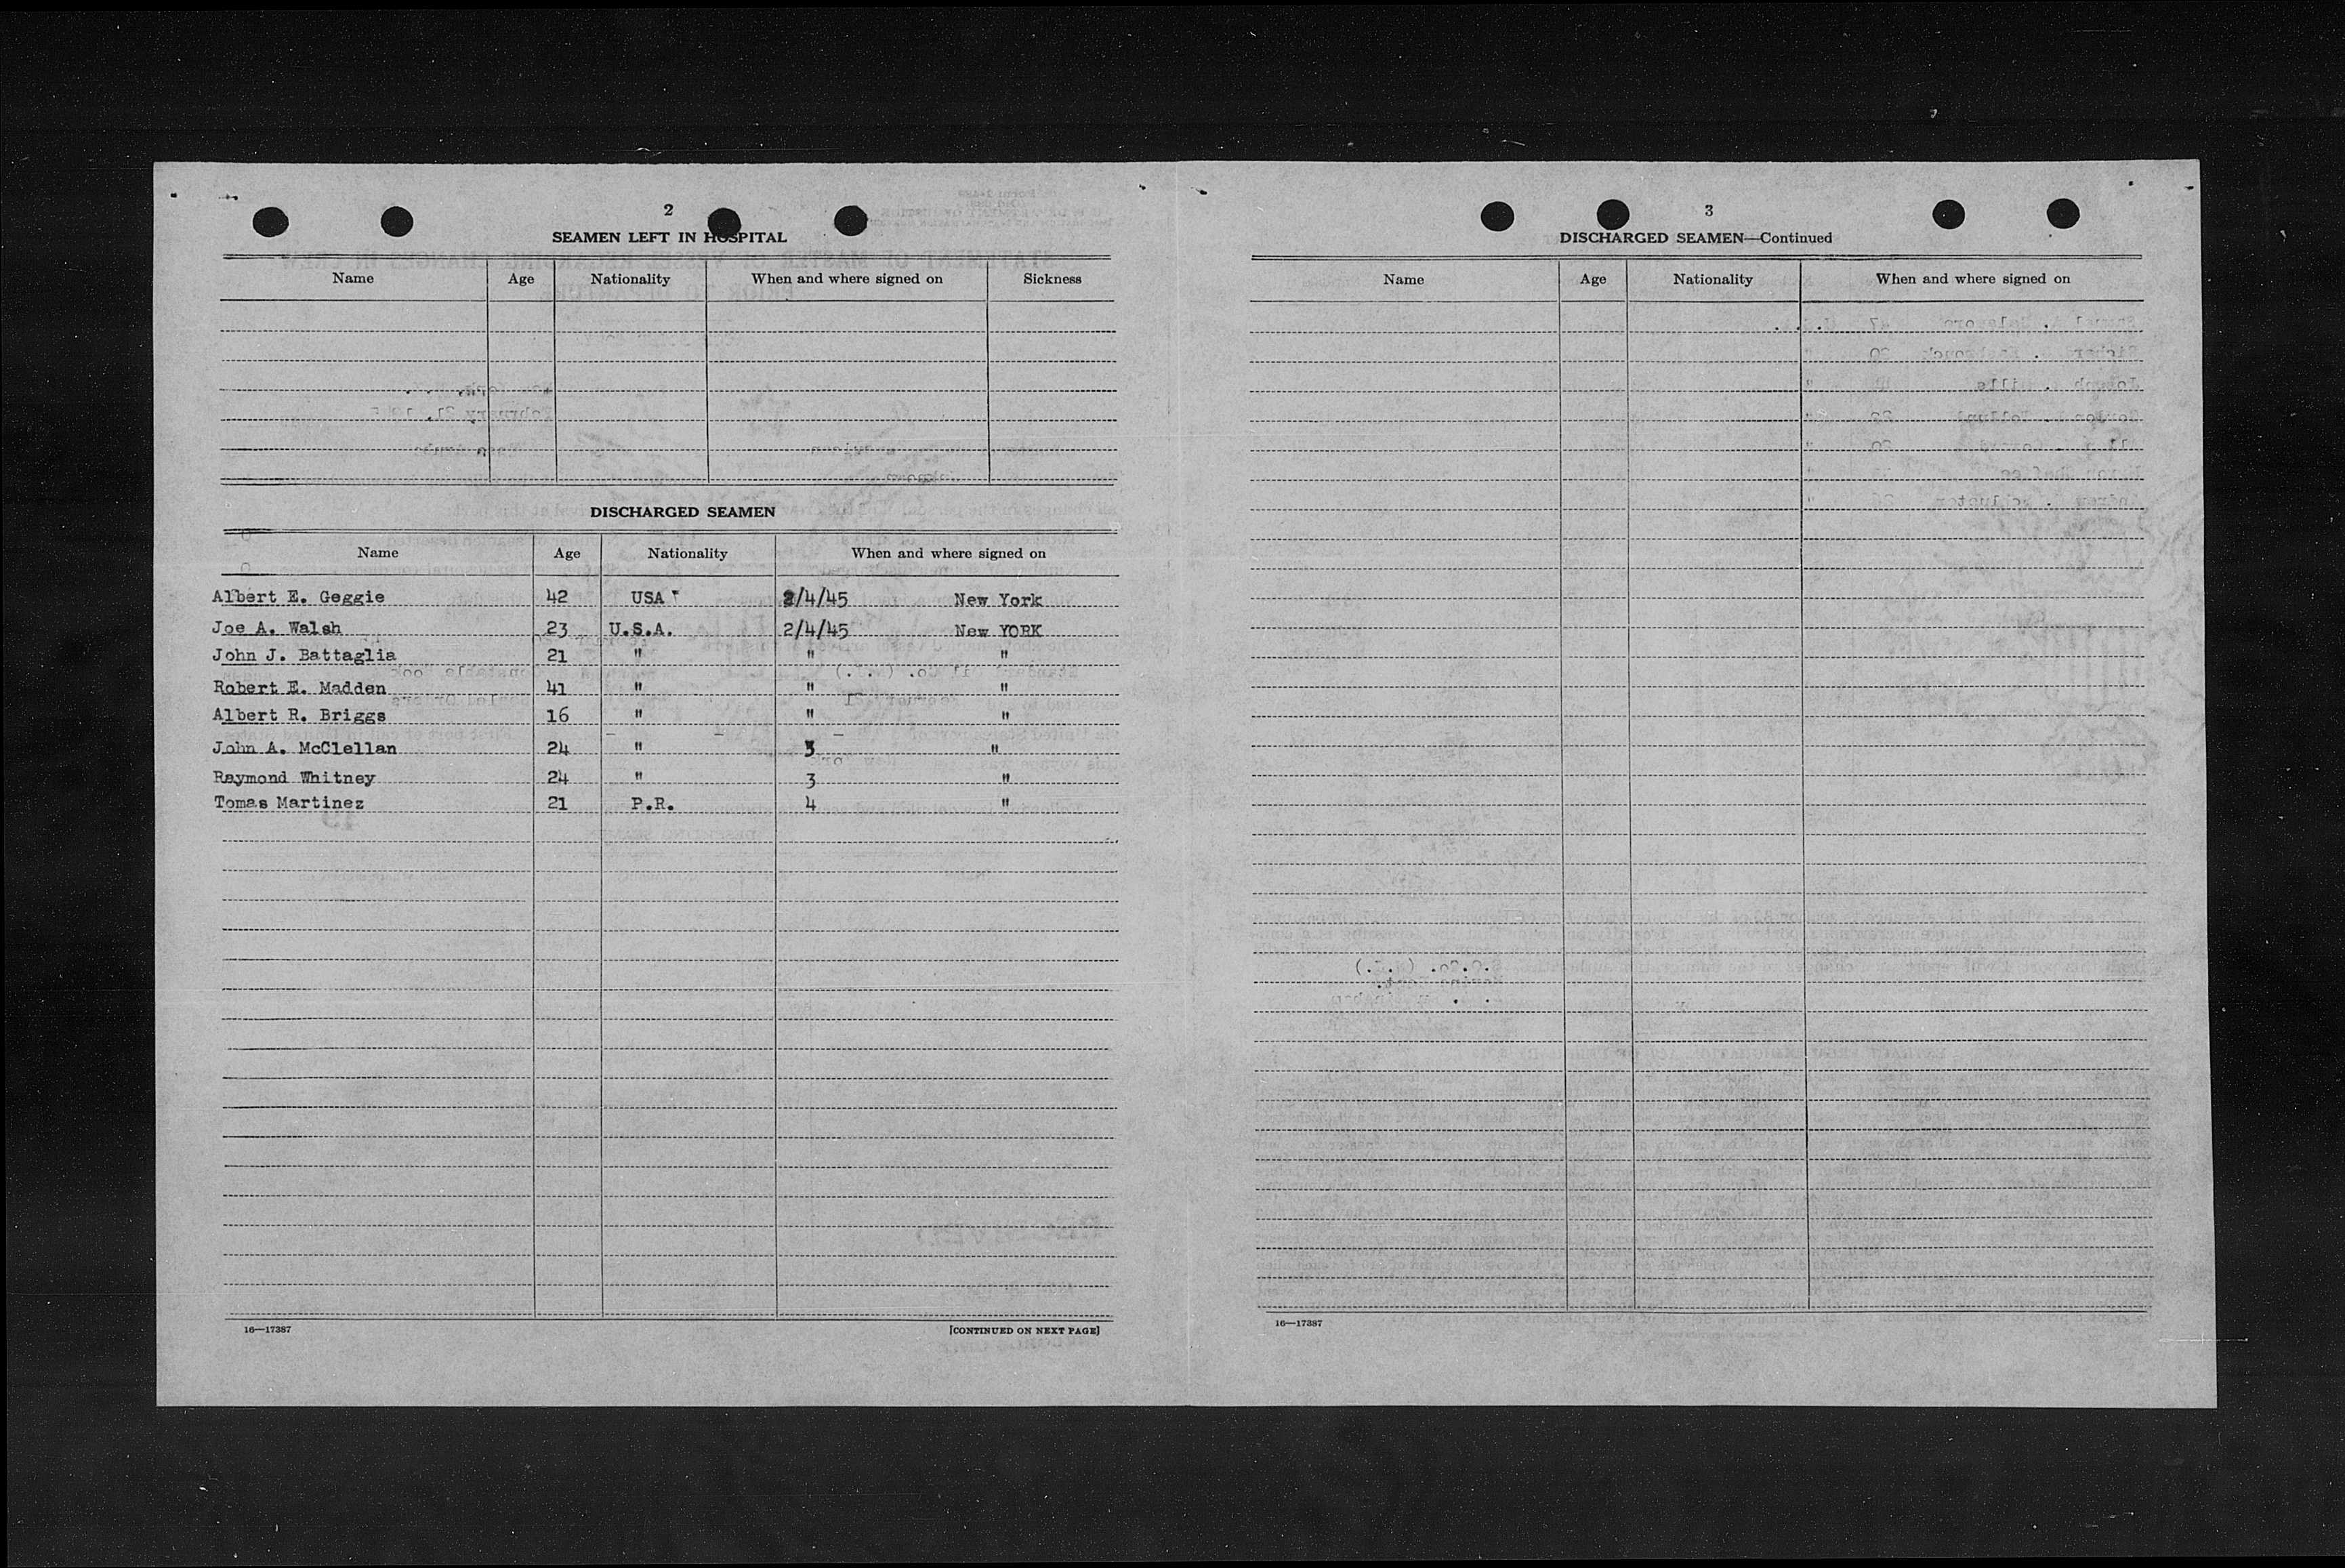 2
SEAMEN LEFT IN HOSPITAL
Name Age Nationality When and where signed on Sickness
DISCHARGED SEAMEN
Name Age Nationality When and where signed on
Albert E. Geggie 42 USA 2/4/45 New York
Joe A. Walsh 23 U.S.A. 2/4/45 New YORK
John J. Battaglia 21 " " "
Robert E. Madden 41 " " "
Albert R. Briggs 16 " " "
John A. McClellan 24 " 3 "
Raymond Whitney 24 " 3 "
Tomas Martinez 21 P.R. 4 "
16—17387 [CONTINUED ON NEXT PAGE]
3
DISCHARGED SEAMEN—Continued
Name Age Nationality When and where signed on
16—17387